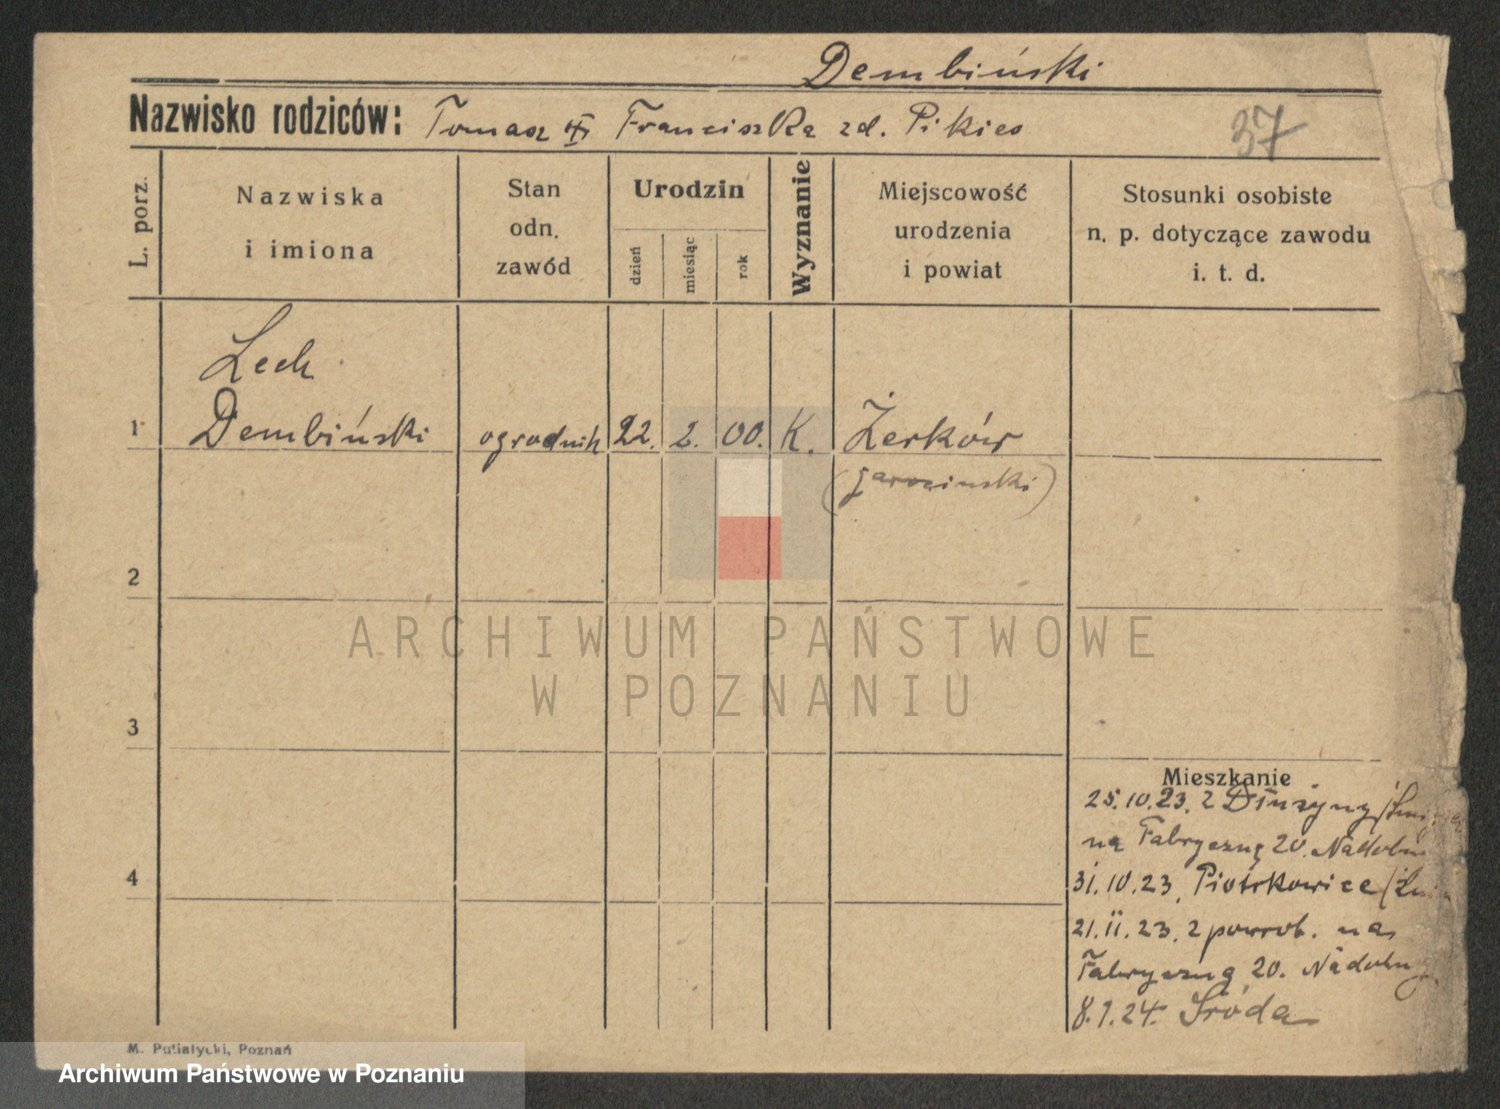 Dembiński
Nazwisko rodziców: Tomasz Franciszka zd. Pikies
37
L. porz.
Nazwiska
i imiona
Stan
odn.
zawód
Urodzin
dzień
miesiąc
rok
Wyznanie
Miejscowość
urodzenia
i powiat
Stosunki osobiste
n. p. dotyczące zawodu
i. t. d.
Lech
1 Dembiński ogrodnik 22. 2. 00. K. Żerków
(jarociński)
2
ARCHIWUM PAŃSTWOWE
W POZNANIU
3
Mieszkanie
25.10.23. z
na Fabryczną 20.
4
31.10.23. Piotrkowice
21.11.23. z powrot. na
Fabryczną 20.
8.1.24. Środa
M. Putiatycki, Poznań
Archiwum Państwowe w Poznaniu